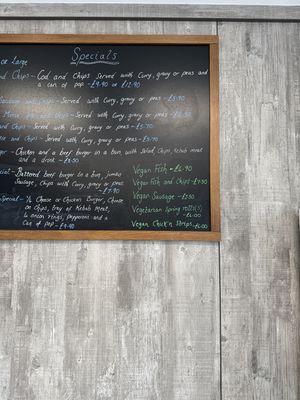 Specials
or Large
and Chips - Cod and Chips Served with Curry, gravy or peas and
a can of pop - £9.90 or £12.90
Sausage and Chips - Served with curry, gravy or peas - £5.90
Served with Curry, gravy or peas
and Chips - Served with Curry, gravy or peas - £5.70
and Chips - Served with curry, gravy or peas in a bun - £5.70
- Chicken and a beef burger in a bun, with salad, Chips, Kebab meat,
and a drink - £8.50
cial - Battered beef burger in a bun, jumbo
Sausage, Chips with Curry, gravy or peas
- £7.90
Special - ½ Cheese or Chicken Burger, Cheese
on Chips, tray of Kebab meat,
4 onion rings, pepperoni and a
Can of pop - £9.90
Vegan Fish - £4.90
Vegan Fish and Chips - £7.50
Vegan Sausage - £2.50
Vegetarian Spring rolls (3)
- £4.00
Vegan Chick'n Strips - £4.00